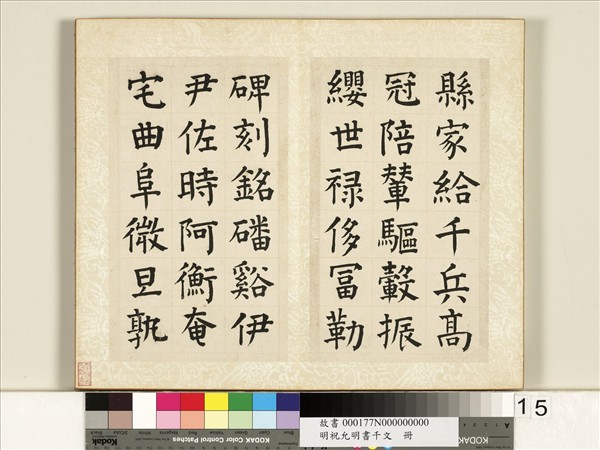 縣家給千兵髙
冠陪輦驅轂振
纓世禄侈冨勒
碑刻銘磻谿伊
尹佐時阿衡奄
宅曲阜微旦孰
15
故書 000177N000000000
明祝允明書千文 冊
Kodak
KODAK Color Control Patches
KODAK